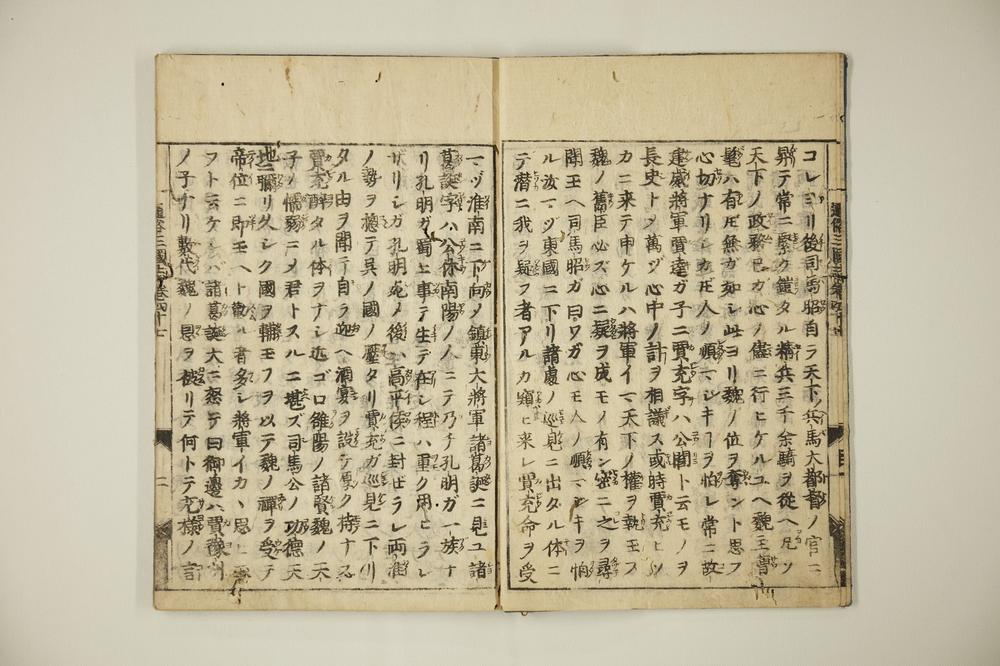 コレヨリ後司馬昭自ラ天下ノ兵馬大都督ノ官ニ
昇テ常ニ緊ク鎧タル精兵三千余騎ヲ從ヘ凡ソ
天下ノ政務己ガ心ノ儘ニ行ヒケルユヘ魏主曹
髦ハ有𪜈無ガ如シ此ヨリ魏ノ位ヲ奪ント思フ
心切ナリシカ𪜈人ノ順フマシキヿヲ怕レ常ニ故
建威將軍賈逵ガ子ニ賈充字ハ公閭ト云モノヲ
長史トメ萬ヅ心中ノ計ヲ相議ス或時賈充ヒソ
カニ来テ申ケルハ將軍イマ天下ノ權ヲ執玉フ
魏ノ舊臣必ズ心ニ疑ヲ成モノ有ン密ニ之ヲ尋
問玉ヘ司馬昭ガ曰ワガ心モ人ノ順マシキヲ怕
ル汝マヅ東國ニ下リ諸處ノ巡見ニ出タル体ニ
テ潜ニ我ヲ疑フ者アルカ窺ヒ来レ賈充命ヲ受
マヅ淮南ニ下向メ鎮東大將軍諸葛誕ニ見ユ諸
葛誕字ハ公休南陽ノ人ニテ乃チ孔明ガ一族ナ
リ孔明ガ蜀ニ事テ生テ在シ程ハ重ク用ヒラレ
ザリシガ孔明死メ後ハ高平侯ニ封ゼラレ両淮
ノ勢ヲ摠テ呉ノ國ノ壓タリ賈充ガ巡見ニ下リ
タル由ヲ聞テ自ラ迎ヘ酒宴ヲ設テ厚ク待ナス
賈充醉タル体ヲナシ近ゴロ雒陽ノ諸賢魏ノ天
子ノ懦弱ニメ君トスルニ堪ズ司馬公ノ功德天
地ニ彌リ久シク國ヲ輔玉フヲ以テ魏ノ禪ヲ受テ
帝位ニ即玉ヘト勸ル者多シ將軍イカヽ思ヒ玉
フトニ云ケレバ諸葛誕大ニ怒テ曰御邊ハ賈豫州
ノ子ナリ數代魏ノ恩ヲ被リテ何トテ充様ノ言
通俗三國志 巻四十七
二